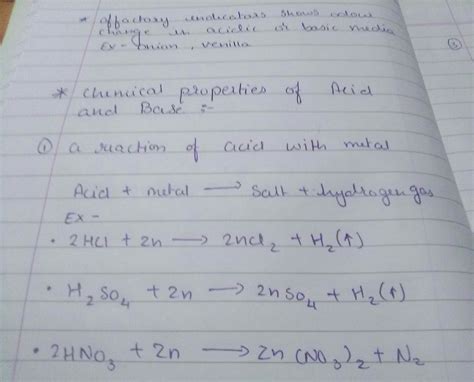 * olfactory indicators shows odour
change in acidic or basic media
Ex - Onion, venilla
* Chemical properties of Acid
and Base :-
① a reaction of acid with metal
Acid + metal → Salt + hydrogen gas
Ex -
• 2HCl + Zn → ZnCl₂ + H₂(↑)
• H₂SO₄ + Zn → ZnSO₄ + H₂(↑)
• 2HNO₃ + Zn → Zn(NO₃)₂ + N₂